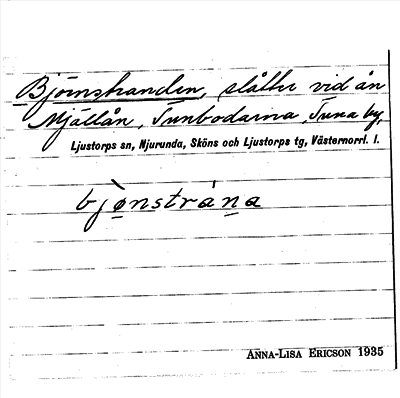 Björnstranden, slåtter vid ån
Mjällån, Tunbodarna, Tuna by,
Ljustorps sn, Njurunda, Sköns och Ljustorps tg, Västernorrl. l.
bjònstrána
ANNA-LISA ERICSON 1935